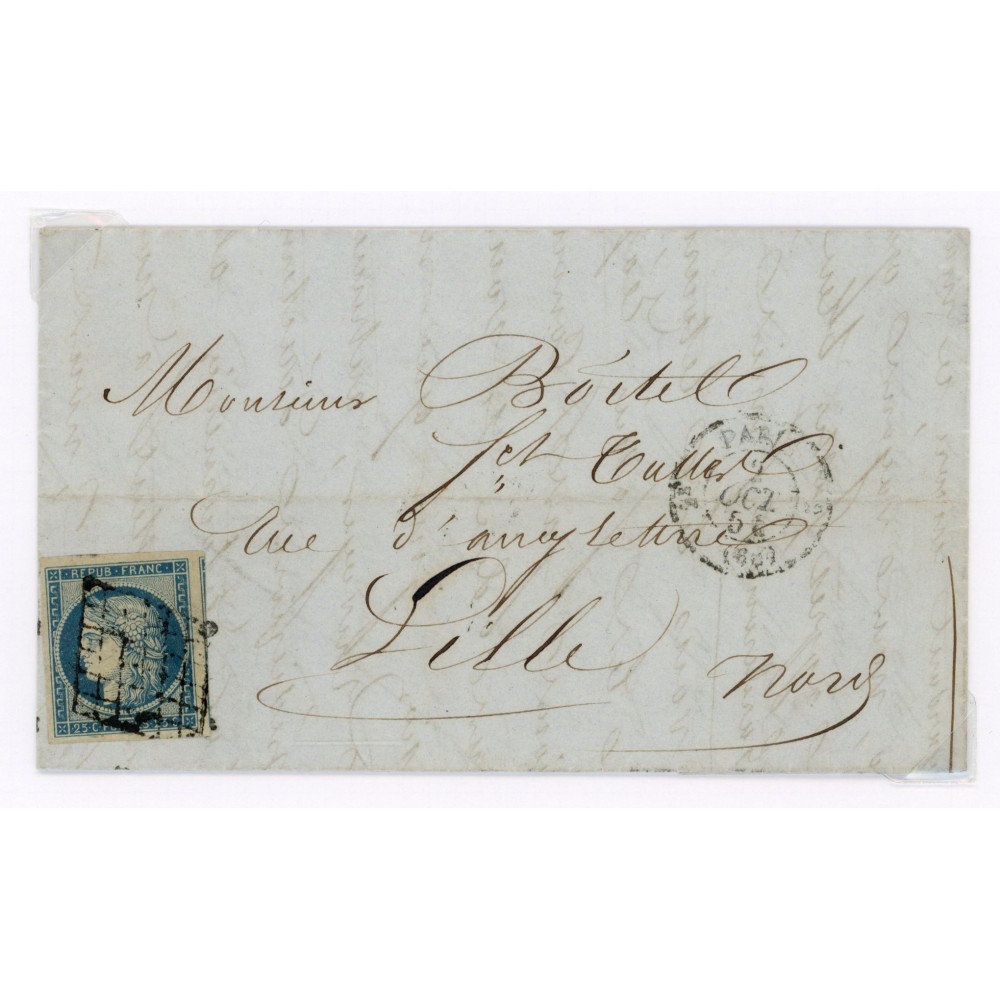 Monsieur Boitel
fct Tulles
Rue d'angleterre
Lille
Nord
PARIS
OCT.
51
(60)
REPUB. FRANC
25 C